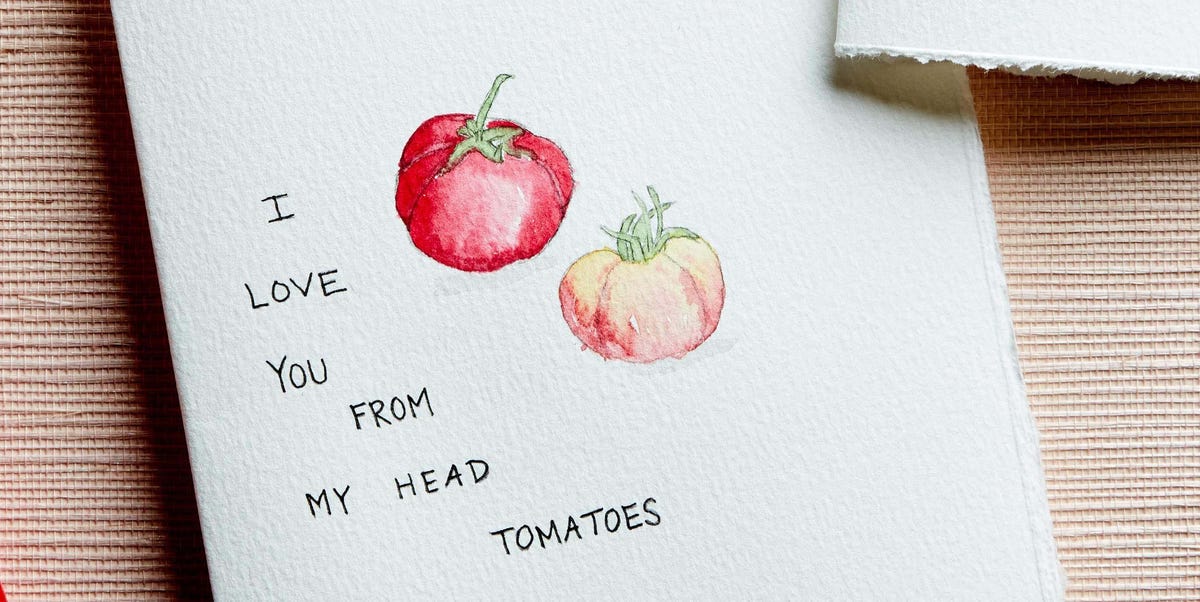 I
LOVE
YOU
FROM
MY HEAD
TOMATOES